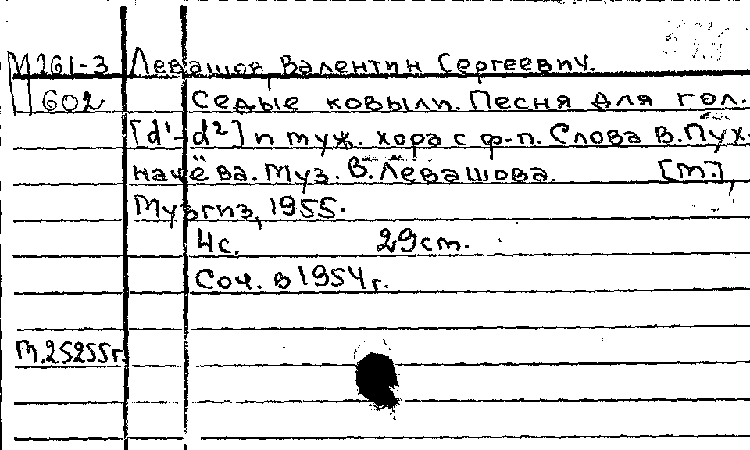 М261-3 Левашов, Валентин Сергеевич.
602 Седые ковыли. Песня для гол.
[d¹-d²] и муж. хора с ф-п. Слова В. Пух-
начёва. Муз. В. Левашова. [М.],
Музгиз, 1955.
4с. 29см.
Соч. в 1954г.
М.25255г.